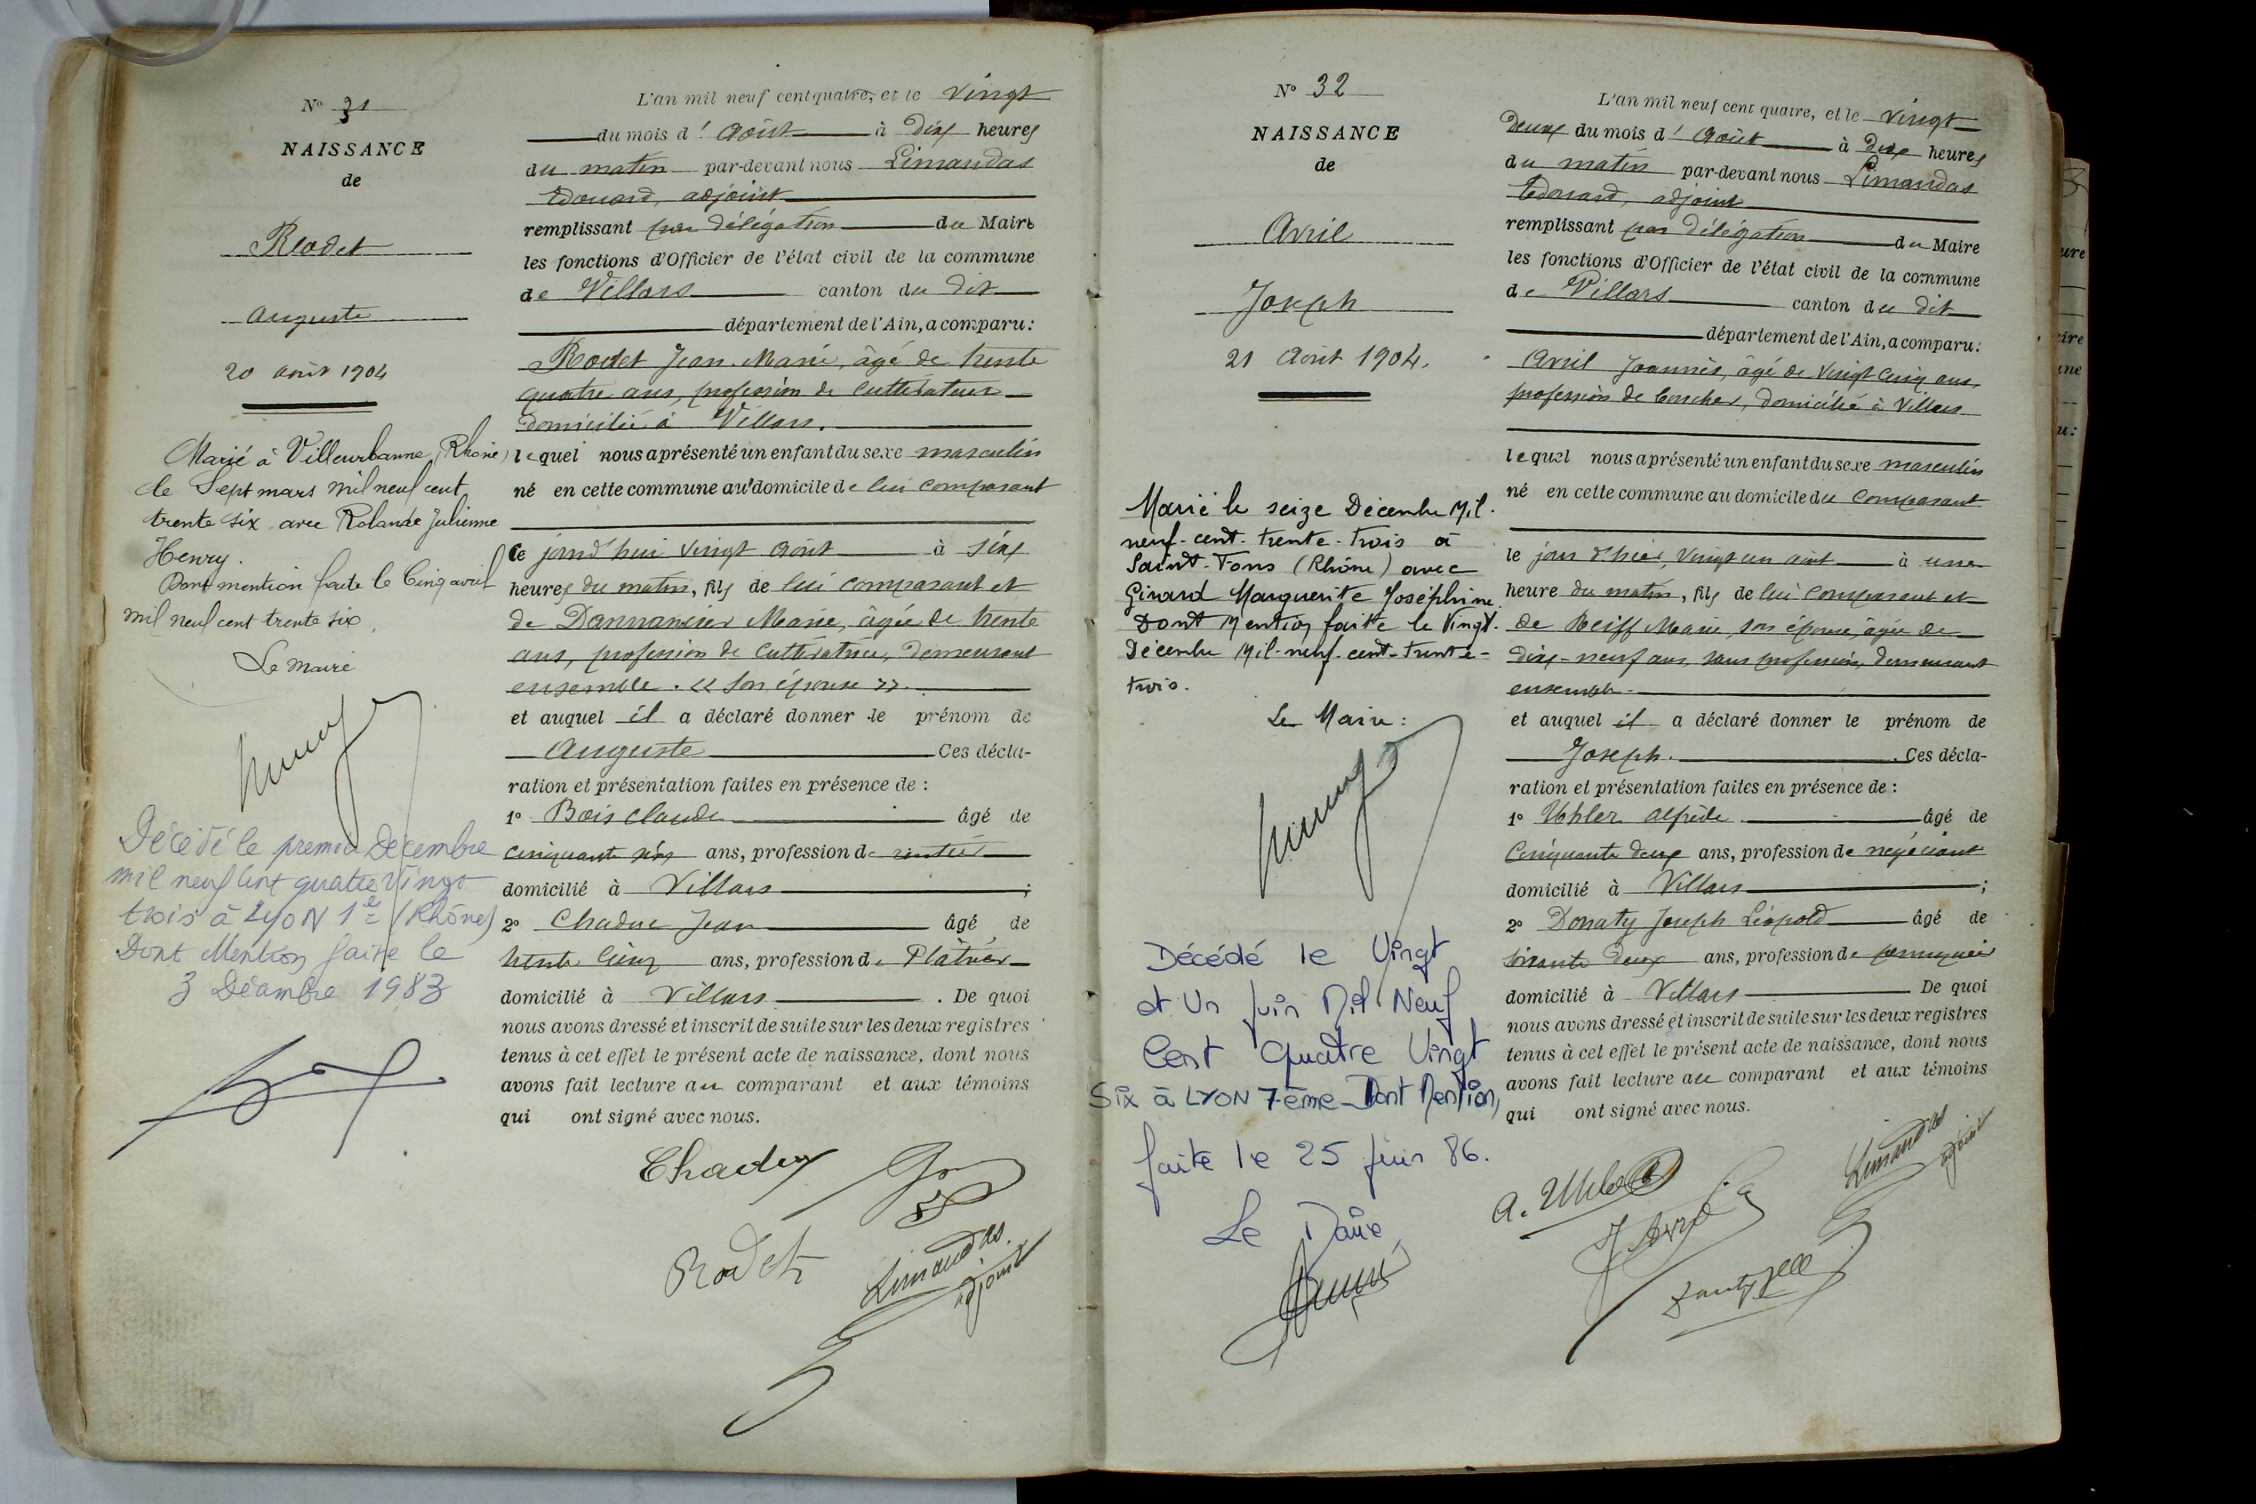 N° 31
NAISSANCE
de
Rodet
Auguste
20 août 1904
Marié à Villeurbanne (Rhône)
le Sept mars mil neuf cent
trente six avec Rolande Julienne
Henry.
Dont mention faite le Cinq avril
mil neuf cent trente six
Le Maire
Décédé le premier Décembre
mil neuf cent quatre vingt
trois à LYON 1er (Rhône)
Dont Mention faite le
3 Décembre 1983
L'an mil neuf cent quatre, et le vingt
du mois d'août à dix heures
du matin par-devant nous Limandas
Edouard, adjoint
remplissant par délégation du Maire
les fonctions d'Officier de l'état civil de la commune
de Villars canton du dit
département de l'Ain, a comparu :
Rodet Jean-Marie, âgé de trente
quatre ans, profession de cultivateur
domicilié à Villars.
lequel nous a présenté un enfant du sexe masculin
né en cette commune au domicile de lui comparant
ce jourd'hui vingt août à six
heures du matin, fils de lui comparant et
de Dannancier Marie, âgée de trente
ans, profession de cultivatrice, demeurant
ensemble. « son épouse ».
et auquel il a déclaré donner le prénom de
Auguste Ces décla-
ration et présentation faites en présence de :
1° Bois Claude âgé de
cinquante six ans, profession de rentier
domicilié à Villars ;
2° Chaduc Jean âgé de
trente cinq ans, profession de Plâtrier
domicilié à Villars . De quoi
nous avons dressé et inscrit de suite sur les deux registres
tenus à cet effet le présent acte de naissance, dont nous
avons fait lecture au comparant et aux témoins
qui ont signé avec nous.
Chaduc
Rodet
Limandas
adjoint
N° 32
NAISSANCE
de
Avril
Joseph
21 Août 1904.
Marié le seize Décembre Mil-
neuf-cent-trente-trois à
Saint-Fons (Rhône) avec
Girard Marguerite Joséphine.
Dont Mention faite le Vingt-
Décembre Mil-neuf-cent-trente-
trois.
Le Maire :
Décédé le Vingt
et Un Juin Mil Neuf
Cent Quatre Vingt
Six à LYON 7ème Dont Mention,
faite le 25 juin 86.
Le Maire
L'an mil neuf cent quatre, et le vingt
deux du mois d'août à dix heures
du matin par-devant nous Limandas
Edouard, adjoint
remplissant par délégation du Maire
les fonctions d'Officier de l'état civil de la commune
de Villars canton du dit
département de l'Ain, a comparu :
Avril Joannès, âgé de vingt cinq ans,
profession de boucher, domicilié à Villars
lequel nous a présenté un enfant du sexe masculin
né en cette commune au domicile du comparant
le jour d'hier, vingt un août à une
heure du matin, fils de lui comparant et
de Reiff Marie, son épouse, âgée de
dix-neuf ans, sans profession, demeurant
ensemble.
et auquel il a déclaré donner le prénom de
Joseph. Ces décla-
ration et présentation faites en présence de :
1° Uhler Alfrède âgé de
cinquante deux ans, profession de négociant
domicilié à Villars ;
2° Donaty Joseph Léopold âgé de
soixante deux ans, profession de perruquier
domicilié à Villars De quoi
nous avons dressé et inscrit de suite sur les deux registres
tenus à cet effet le présent acte de naissance, dont nous
avons fait lecture au comparant et aux témoins
qui ont signé avec nous.
A. Uhler
Limandas
adjoint